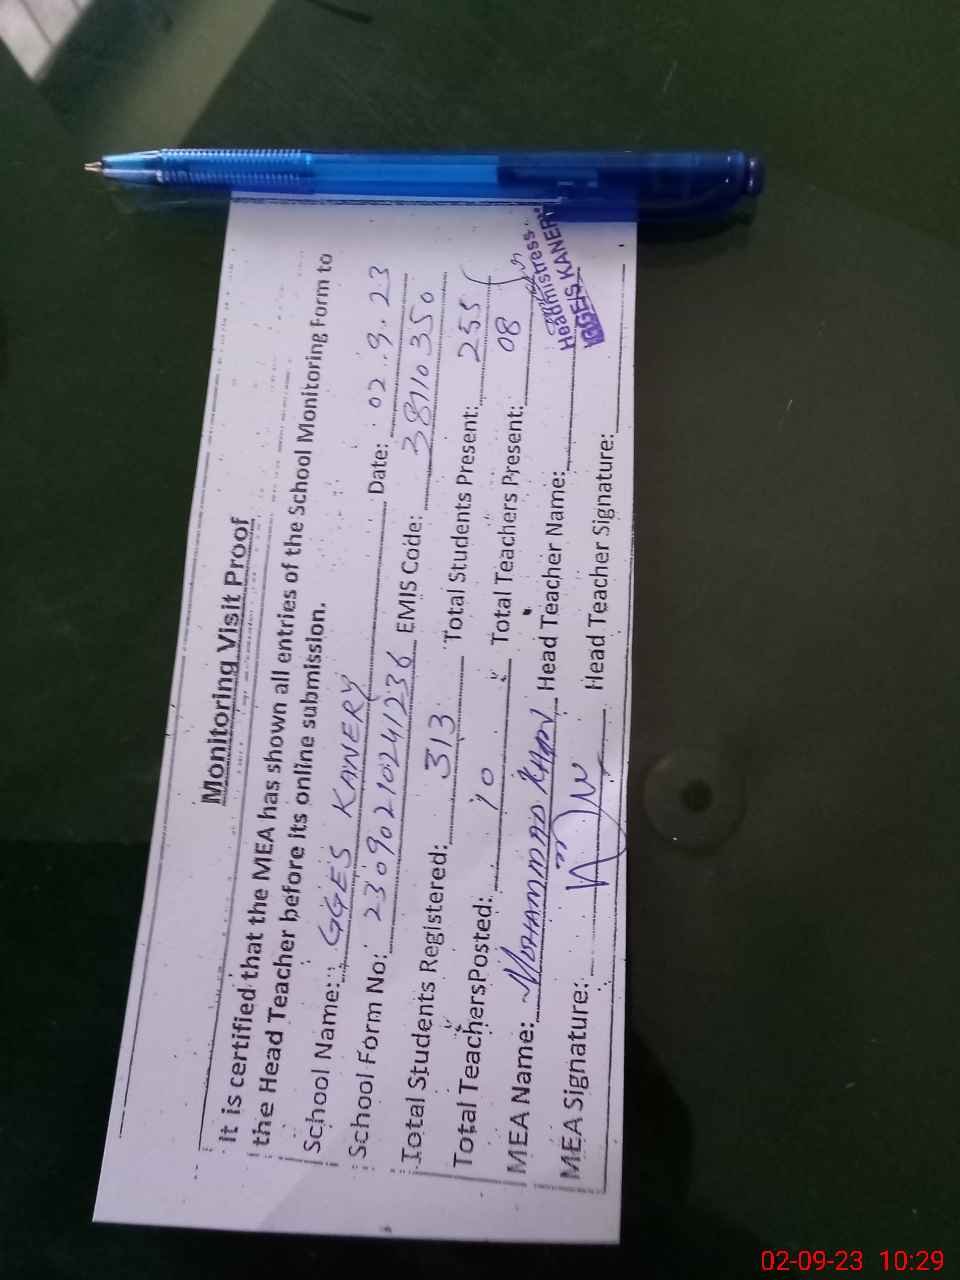 Monitoring Visit Proof
It is certified that the MEA has shown all entries of the School Monitoring Form to
the Head Teacher before its online submission.
School Name: GGES KANERY Date: 02.9.23
School Form No: 23090210241236 EMIS Code: 38110350
Total Students Registered: 313 Total Students Present: 255
Total TeachersPosted: 10 Total Teachers Present: 08
MEA Name: MOHAMMAD KHAN Head Teacher Name:
MEA Signature: Head Teacher Signature:
Headmistress
GGES KANERY
02-09-23 10:29